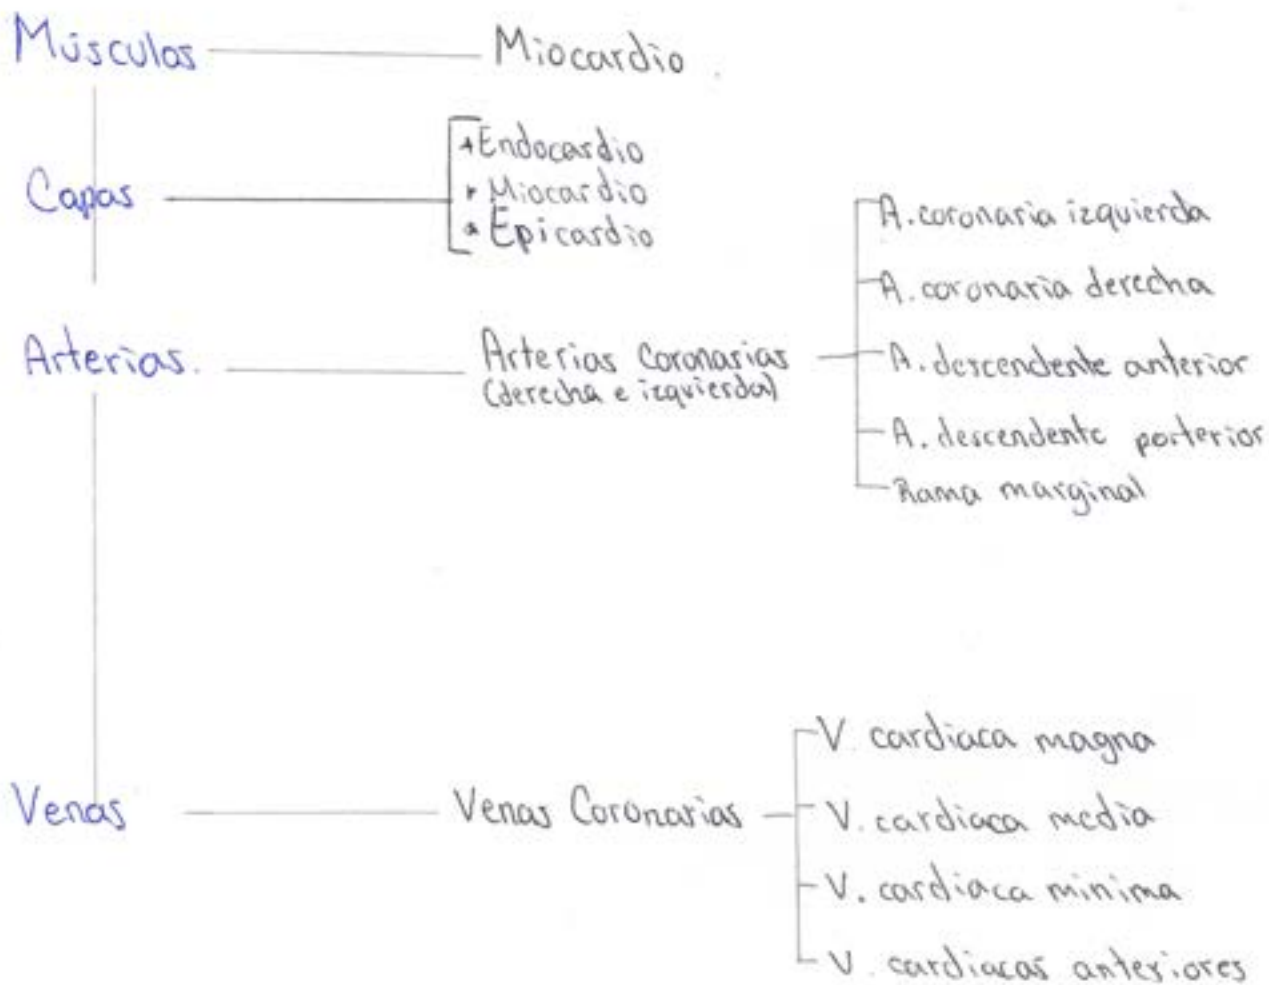 Músculos
Miocardio
Capas
Endocardio
Miocardio
Epicardio
Arterias.
Arterias Coronarias
(derecha e izquierda)
A. coronaria izquierda
A. coronaria derecha
A. descendente anterior
A. descendente posterior
Rama marginal
Venas
Venas Coronarias
V. cardiaca magna
V. cardiaca media
V. cardiaca minima
V. cardiacas anteriores